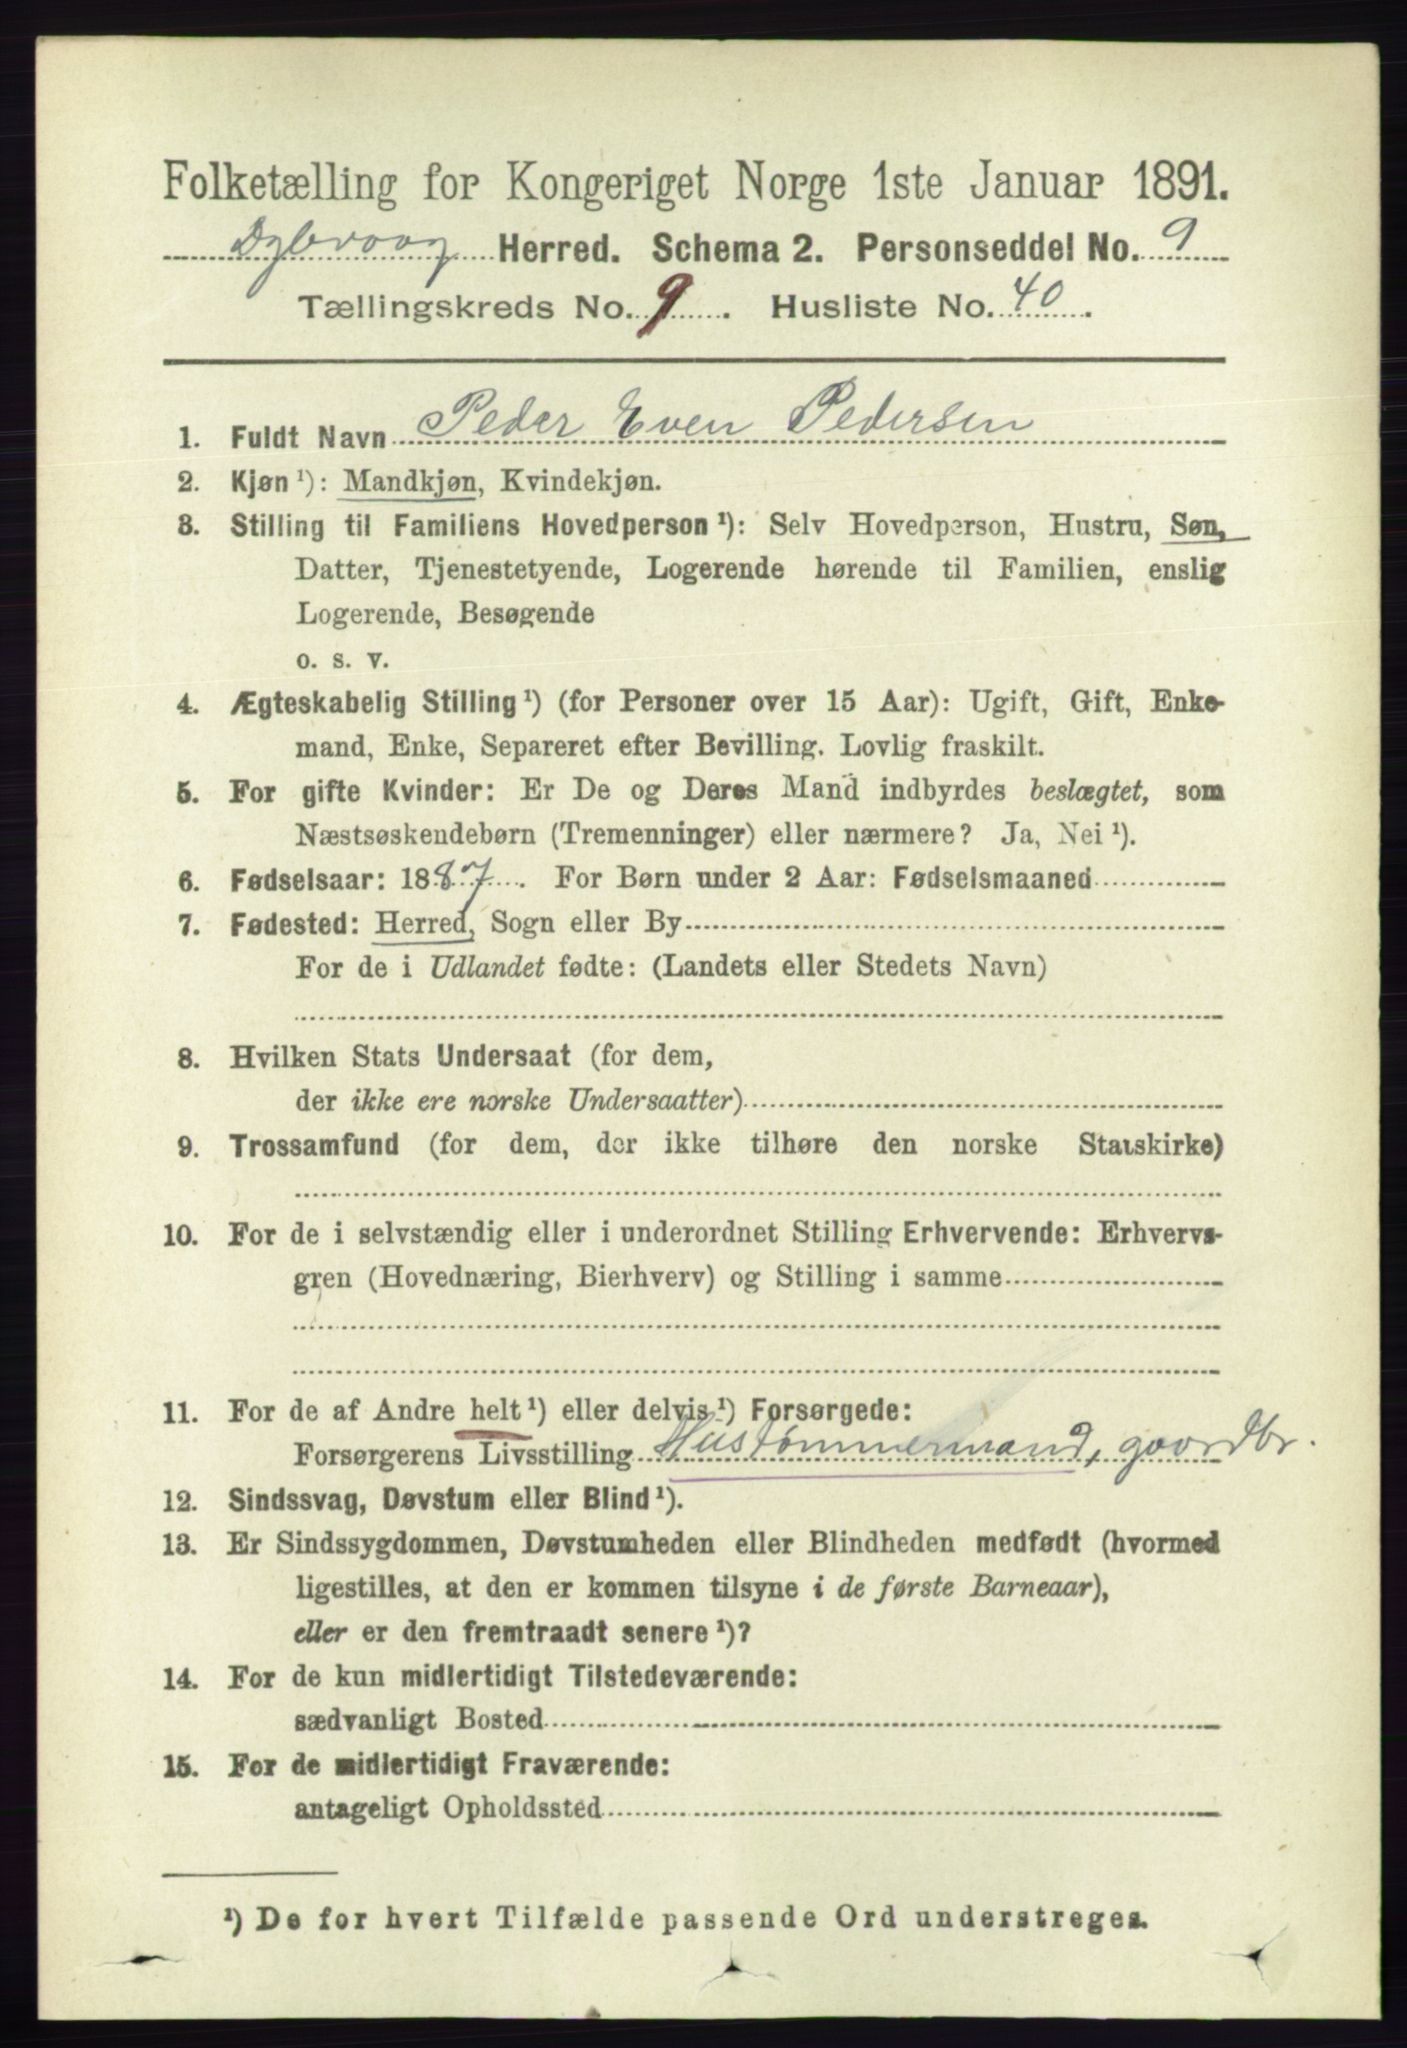 Folketælling for Kongeriget Norge 1ste Januar 1891.
Dybvaag Herred. Schema 2. Personseddel No. 9
Tællingskreds No. 9. Husliste No. 40.
1. Fuldt Navn Peder Even Pedersen
2. Kjøn ¹): Mandkjøn, Kvindekjøn.
3. Stilling til Familiens Hovedperson ¹): Selv Hovedperson, Hustru, Søn,
Datter, Tjenestetyende, Logerende hørende til Familien, enslig
Logerende, Besøgende
o. s. v.
4. Ægteskabelig Stilling ¹) (for Personer over 15 Aar): Ugift, Gift, Enke-
mand, Enke, Separeret efter Bevilling. Lovlig fraskilt.
5. For gifte Kvinder: Er De og Deres Mand indbyrdes beslægtet, som
Næstsøskendebørn (Tremenninger) eller nærmere? Ja, Nei ¹).
6. Fødselsaar: 1887. For Børn under 2 Aar: Fødselsmaaned
7. Fødested: Herred, Sogn eller By
For de i Udlandet fødte: (Landets eller Stedets Navn)
8. Hvilken Stats Undersaat (for dem,
der ikke ere norske Undersaatter)
9. Trossamfund (for dem, der ikke tilhøre den norske Statskirke)
10. For de i selvstændig eller i underordnet Stilling Erhvervende: Erhvervs-
gren (Hovednæring, Bierhverv) og Stilling i samme
11. For de af Andre helt ¹) eller delvis ¹) Forsørgede:
Forsørgerens Livsstilling Hustømmermand, gaardbr.
12. Sindssvag, Døvstum eller Blind ¹).
13. Er Sindssygdommen, Døvstumheden eller Blindheden medfødt (hvormed
ligestilles, at den er kommen tilsyne i de første Barneaar),
eller er den fremtraadt senere ¹)?
14. For de kun midlertidigt Tilstedeværende:
sædvanligt Bosted
15. For de midlertidigt Fraværende:
antageligt Opholdssted
¹) De for hvert Tilfælde passende Ord understreges.